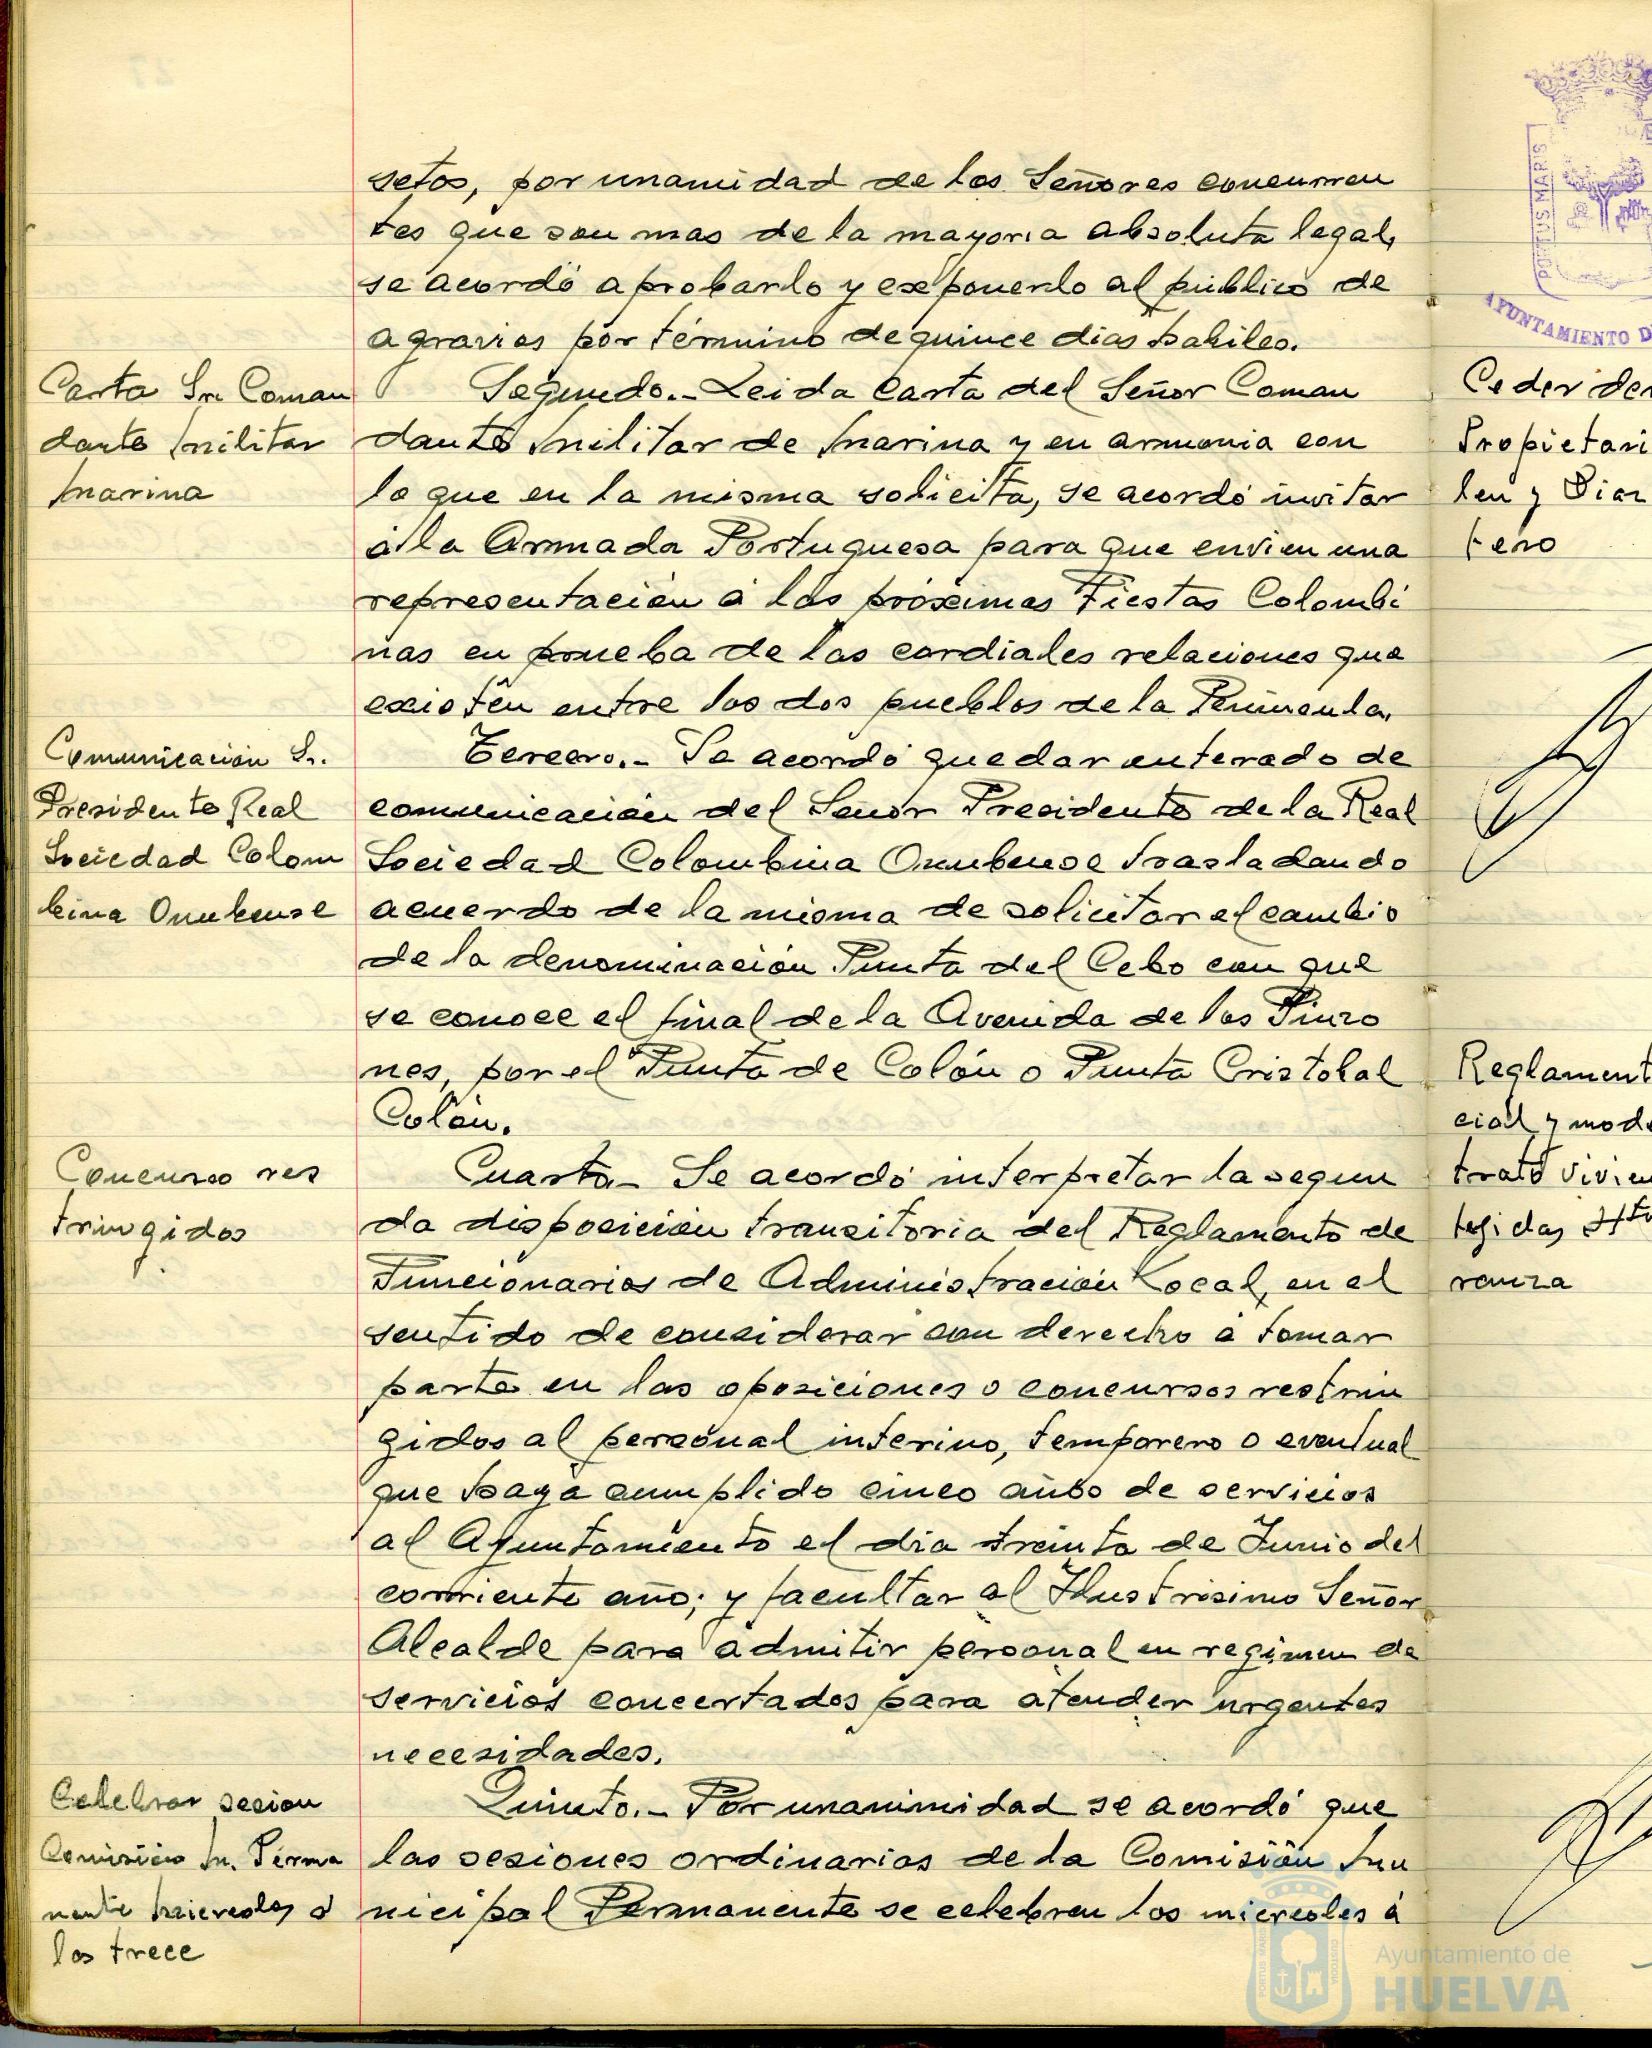 setos, por unamidad de los Señores concurren
tes que son mas de la mayoria absoluta legal,
se acordó aprobarlo y exponerlo al público de
agravios por término de quince dias habiles.
Carta Sr. Coman
dante Militar
Marina
Segundo.- Leida carta del Señor Coman
dante Militar de Marina y en armonia con
lo que en la misma solicita, se acordó invitar
á la Armada Portuguesa para que envien una
representación á las próximas Fiestas Colombi
nas en prueba de las cordiales relaciones que
existen entre los dos pueblos de la Peninsula.
Comunicación Sr.
Presidente Real
Sociedad Colom
bina Onubense
Tercero.- Se acordó quedar enterado de
comunicación del Señor Presidente de la Real
Sociedad Colombina Onubense trasladando
acuerdo de la misma de solicitar el cambio
de la denominación Punta del Cebo con que
se conoce el final de la Avenida de los Pinzo
nes, por el Punta de Colón o Punta Cristobal
Colón.
Concurso res
tringidos
Cuarto.- Se acordó interpretar la segun
da disposición transitoria del Reglamento de
Funcionarios de Administración Local, en el
sentido de considerar con derecho á tomar
parte en las oposiciones o concursos restrin
gidos al personal interino, temporero o eventual
que haya cumplido cinco años de servicios
al Ayuntamiento el dia treinta de Junio del
corriente año; y facultar al Ilustrisimo Señor
Alcalde para admitir personal en regimen de
servicios concertados para atender urgentes
necesidades.
Celebrar sesion
Comisión M. Perma
nente Miercoles á
las trece
Quinto.- Por unanimidad se acordó que
las sesiones ordinarias de la Comisión Mu
nicipal Permanente se celebren los miercoles á
PORTUS MARIS
AYUNTAMIENTO D
Ceder der
Propietari
len y Diar
tero
Reglament
cial y mod
trato vivien
tegidas
ranza
Ayuntamiento de
HUELVA